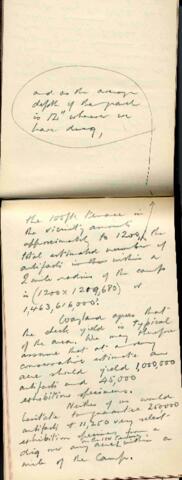 and as the average
depth of the gravel
is 12" wherever we
have dug,
The 100ft Terrace in
the vicinity amounts
approximately to 1200, the
total estimated number of
artifacts in within a
2 mile radius of the camp
is (1200 x 1219,680) or
1,463,616,000!
Wayland agrees that
the yield is typical
of the area. We may therefore
assume that at a very
conservative estimate
should yield 1,000,000
artifacts and 45,000
exhibition specimens.
Neither of us would
hesitate to guarantee 250000
artifacts & 11,250 very select
exhibition specimens from a
dig over any within a
mile of the Camp.